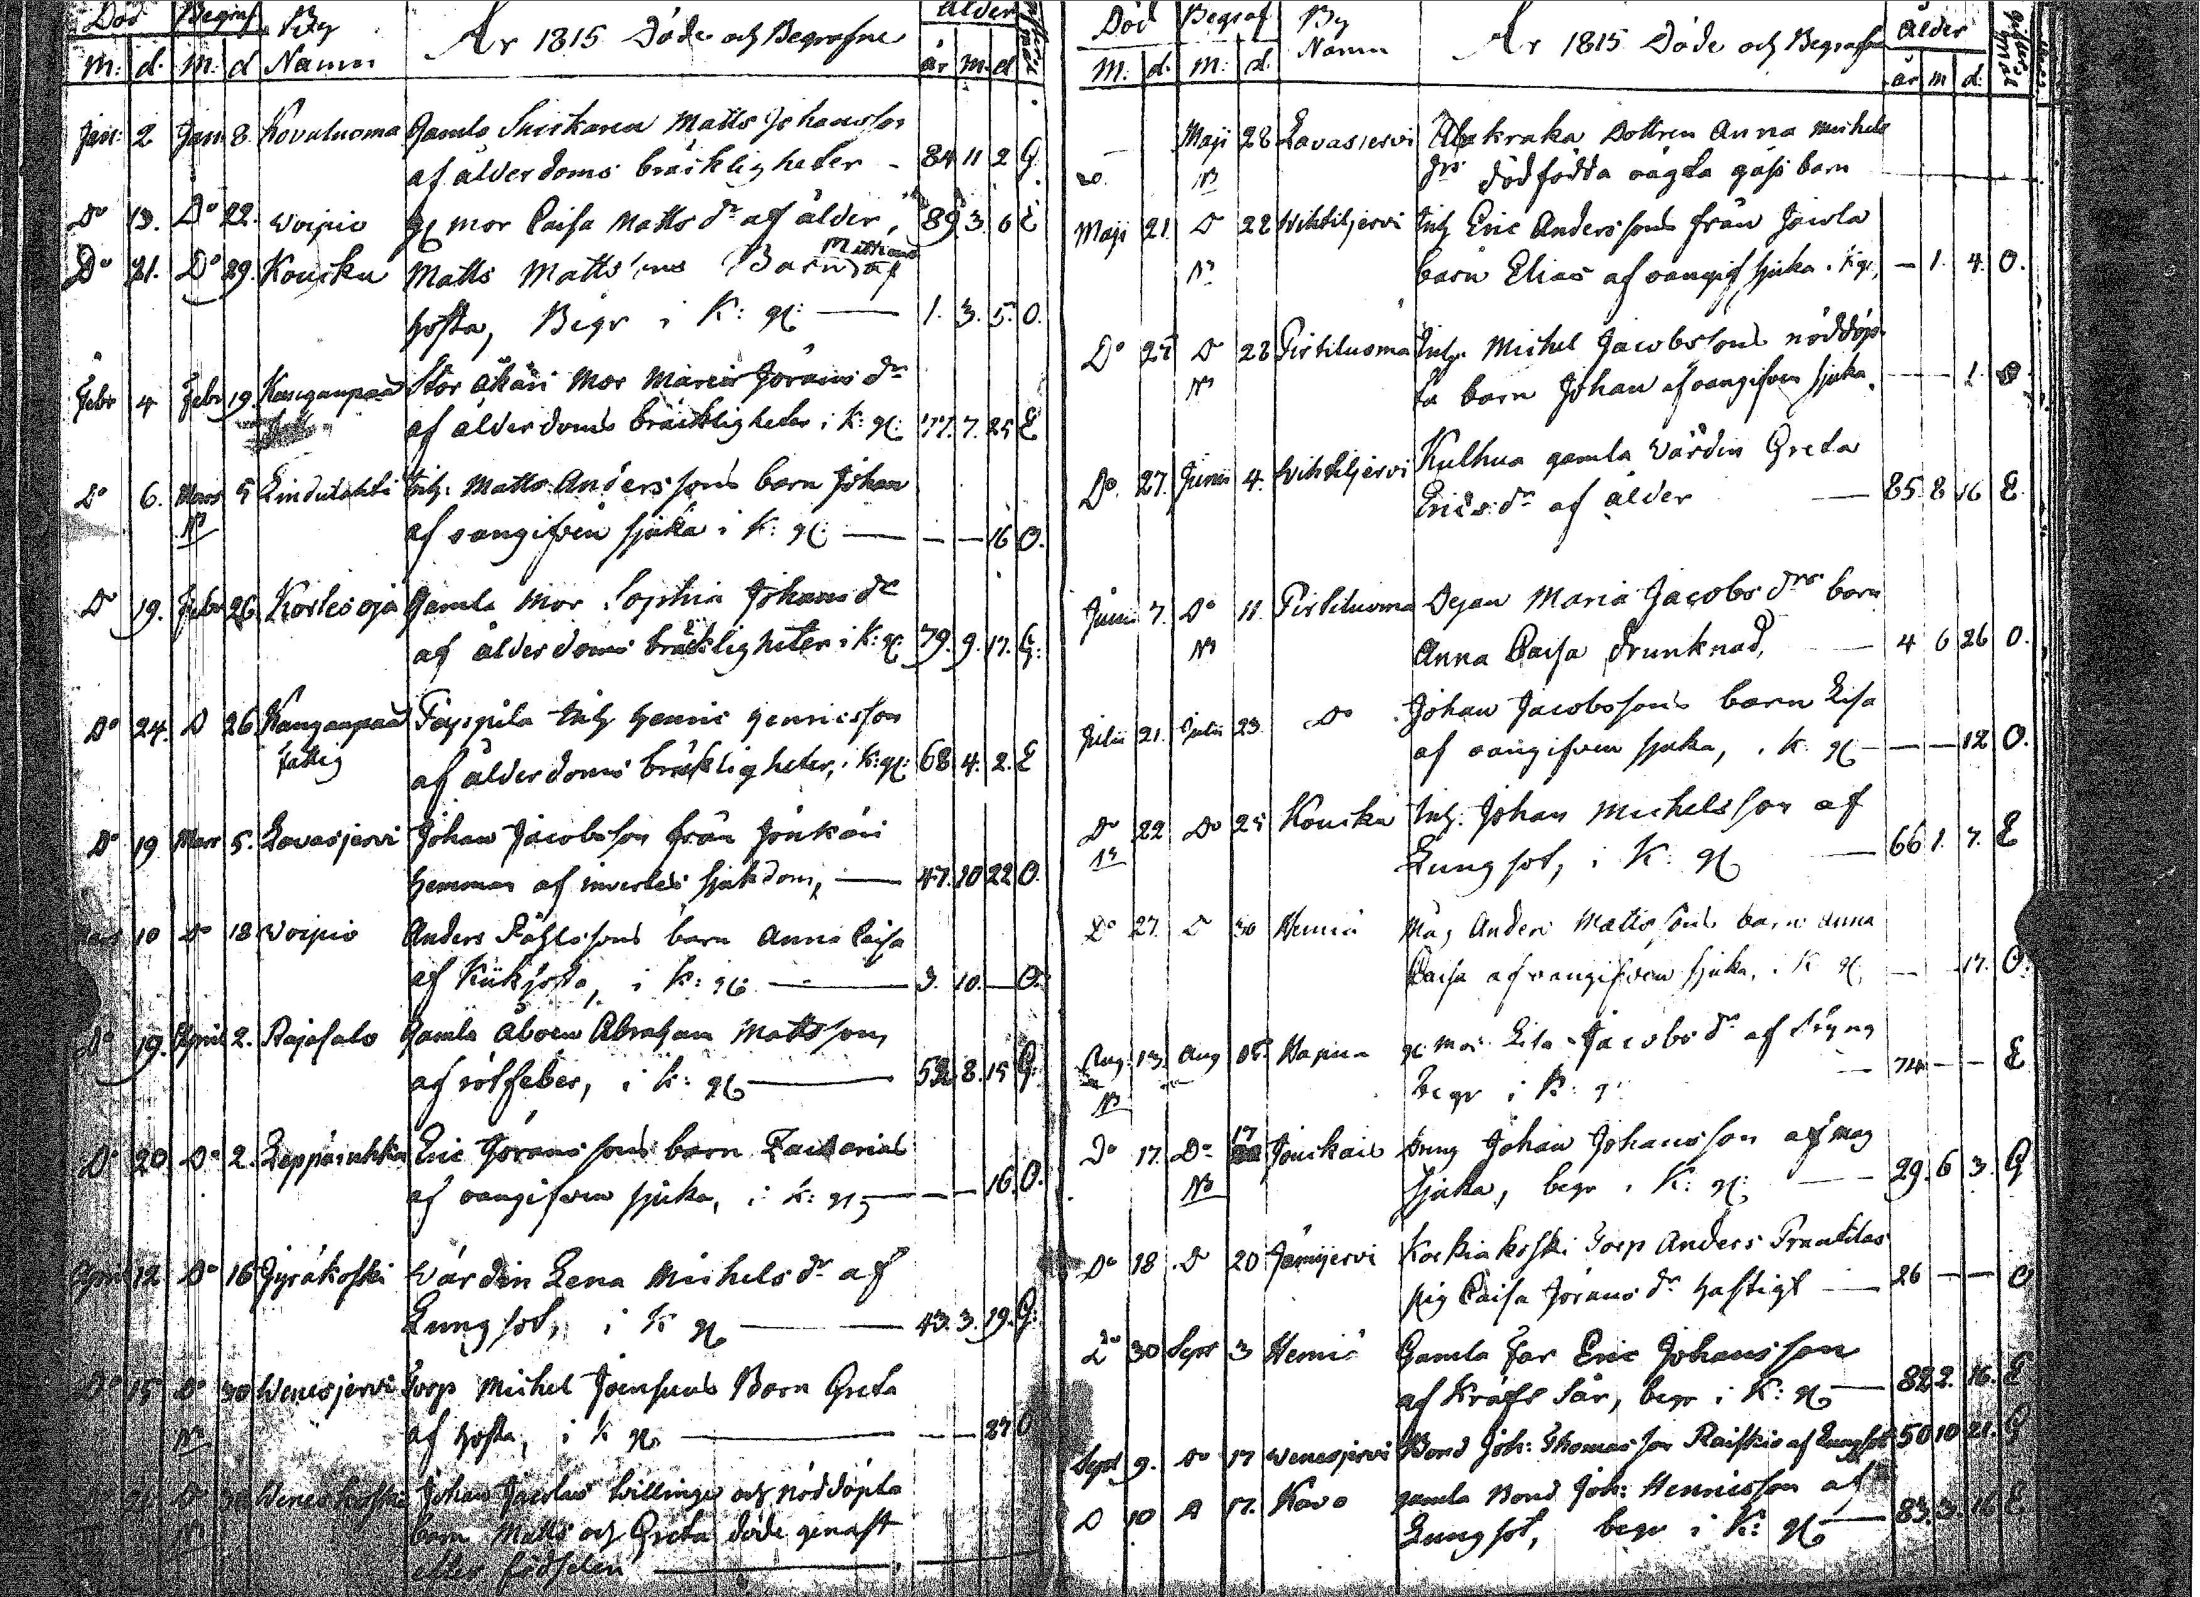 Död Begraf. By Ålder
M: d. M: d Namn År 1815 Döde och Begrafne år M. d
Jan: 2 Jan 8. Kovaluoma Gamla Matts Johansson
af ålderdoms bräckligheter - 84 11 2 G
Do 13. Do 22. Woipio gl mor Caisa Matts dr af ålder, 89. 3. 6 E
Do 21. Do 29. Koucku Matts Matts sons Barn af
hosta, Begr i K: gl: — 1. 3. 5. O.
Febr 4 Febr 19. Kangaspää Stor Mor Maria Jörans dr
af ålderdoms bräckligheter i K: gl: 77. 7. 25 E
Do 6. Mars 5 Lindulahti Inh: Matts Anderssons barn Johan
NB af oangifven sjuka i K: gl: — — — 16 O.
Do 19. Febr 26. Koskesoja Gamla Mor Sophia Johans dr
af ålderdoms bräckligheter i K: gl: 79. 9. 17. G:
Do 24. D 26 Kangaspää Inh Henric Henricsson
fattig af ålderdoms bräckligheter, i K: gl: 68 4. 2. E
Do 19 Mars 5. Lavasjervi Johan Jacobsson från Jonkäri
hemman af invertes sjukdom, — 47. 10 22 O.
Mars 10 Do 18 Woipio Anders Påhlssons barn Anna Caisa
af Kikhosta, i K: gl: — 3. 10. — O.
Do 19. April 2. Rajasalo Gamla Åboen Abraham Mattsson
af rötfeber, i K: gl — 52 8. 15 G:
Do 20 Do 2. Leppäruhka Eric Jöranssons barn Zacharias
af oangifven sjuka, i K: gl — — — 16. O.
April 12 Do 16 Jyräkoski Värdin Lena Michels dr af
Lungsot, i K gl — 43. 3. 19. G:
Do 15 Do 30 Wenesjervi Torp Michel Joensuus Barn Greta
NB af hosta, i K gl — — — 27 O
Do Weneskoski Johan Jacobs tvillingar och nöddöpta
NB barn Matts och Greta döde genast
efter födselen —
Död Begraf By Ålder
M. d. M: d. Namn År 1815 Döde och Begrafne år m d.
— Maji 28 Lavasjervi Dottren Anna Michels
NB drs dödfödda oägta goss barn
Maji 21. D 28 Wihtiljervi Inh Eric Anderssons från Jaivla
NB barn Elias af oangif. sjuka i K gl, — 1. 4. O.
Do 25 D 28 Pirtiluoma Inh: Michel Jacobssons nöddöp-
NB ta barn Johan af oangifven sjuka, — — 1. O
Do. 27. Junii 4. Wihtiljervi Kulhua gamla Värdin Greta
Erics dr af ålder — 85. 8 16 E.
Junii 7. Do 11. Pirtiluoma Dejan Maria Jacobs drs barn
NB Anna Caisa drunknad, — 4 6 26 O.
Julii 21. Julii 23. Do Johan Jacobssons barn Lisa
af oangifven sjuka, i K: gl — — — 12 O.
Do 22 Do 25 Koucku Inh: Johan Michelsson af
NB Lungsot, i K: gl — 66 1. 7. E
Do 27. D 30 Hemiä Måg Anders Mattssons barn Anna
Caisa af oangifven sjuka, i K gl, — 17. O.
Aug: 13. Aug Hapua gl: mor Lisa Jacobs dr af Styng
NB begr i K: g: — 74 — — E
Do 17. Do 17 Jonckais Dreng Johan Johansson af mag
NB sjuka, begr i K: gl: — 29. 6 3. G
Do 18 D 20 Jämijervi Koskiakoski Torp Anders Franttilas
pig Caisa Jörans dr hastigt — 26 — — O
Do 30 Sept 3 Hemiä Gamla Far Eric Johansson
af Kräfs sår, begr i K: gl — 82 2. 16. E
Sept 9. Do 17 Wenesjervi Bond Joh: Thomasson Raiskio af Lungsot 50 10 21. G
D 10 D 17. Kovo gamla Bond Joh: Henricsson af
Lungsot, begr i K: gl — 83. 3. 16 E